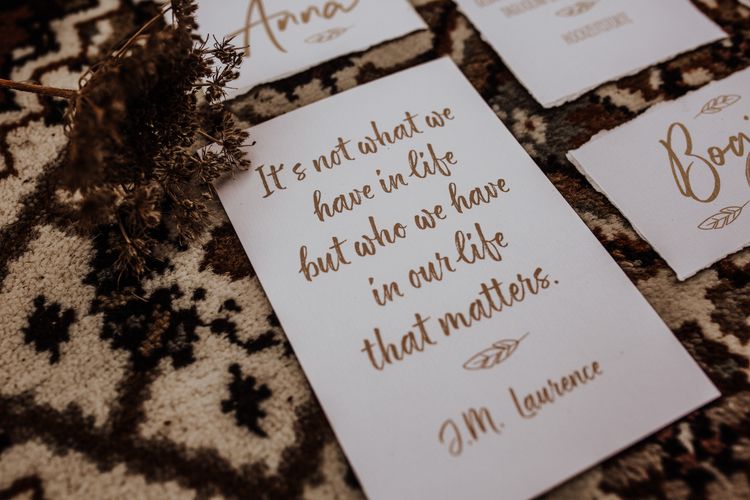 Anna
HÜCKELTISATZ
It's not what we
have in life
but who we have
in our life
that matters.
J.M. Laurence